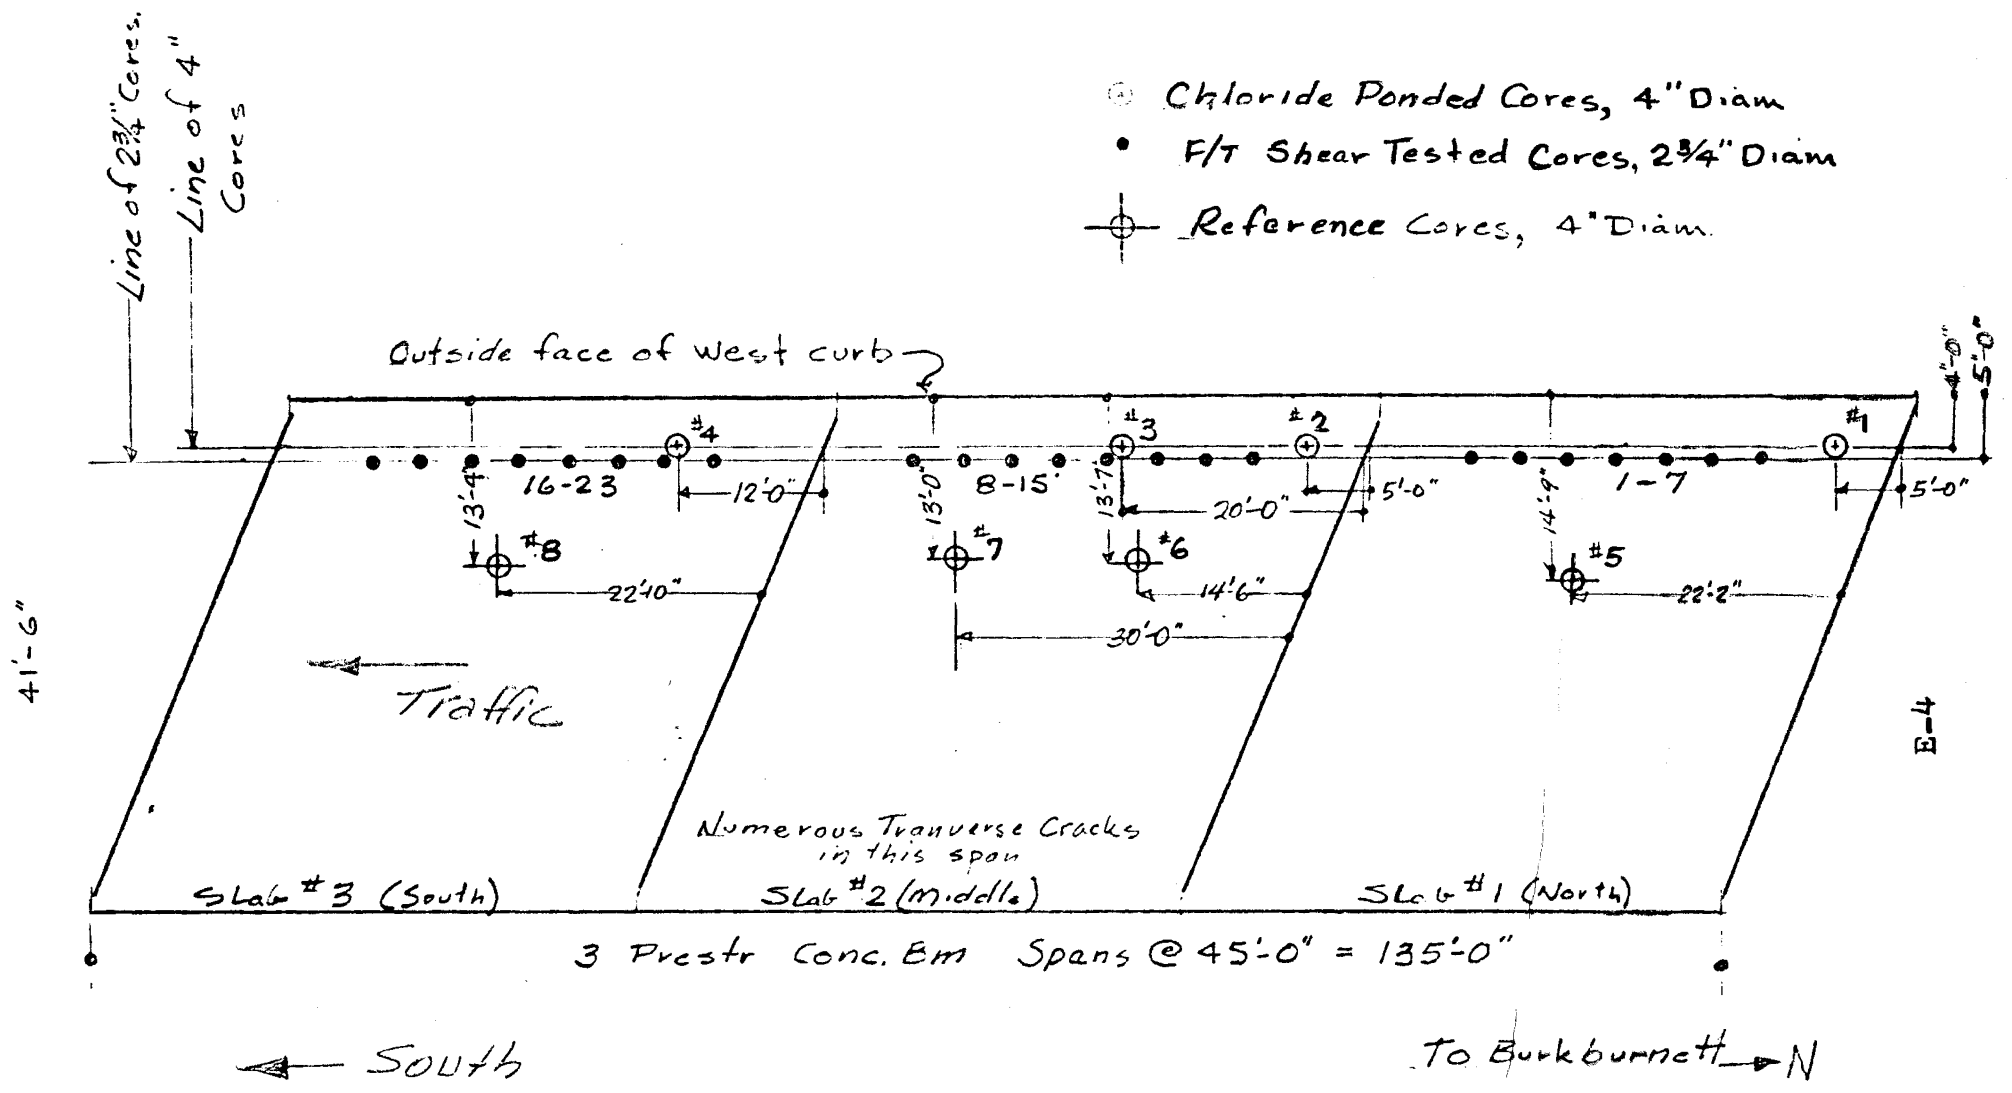 Line of 2 3/4" Cores.
Line of 4"
Cores
Chloride Ponded Cores, 4" Diam
F/T Shear Tested Cores, 2 3/4" Diam
Reference Cores, 4" Diam.
Outside face of west curb
4'-0"
5'-0"
#4
#3
#2
#1
16-23
8-15
1-7
13'-4"
12'-0"
13'-0"
13'-7"
20'-0"
5'-0"
14'-9"
5'-0"
#8
#7
#6
#5
22'-10"
14'-6"
22'-2"
30'-0"
41'-6"
Traffic
E-4
Numerous Tranverse Cracks
in this span
Slab #3 (South)
Slab #2 (Middle)
Slab #1 (North)
3 Prestr Conc. Bm Spans @ 45'-0" = 135'-0"
South
To Burkburnett
N